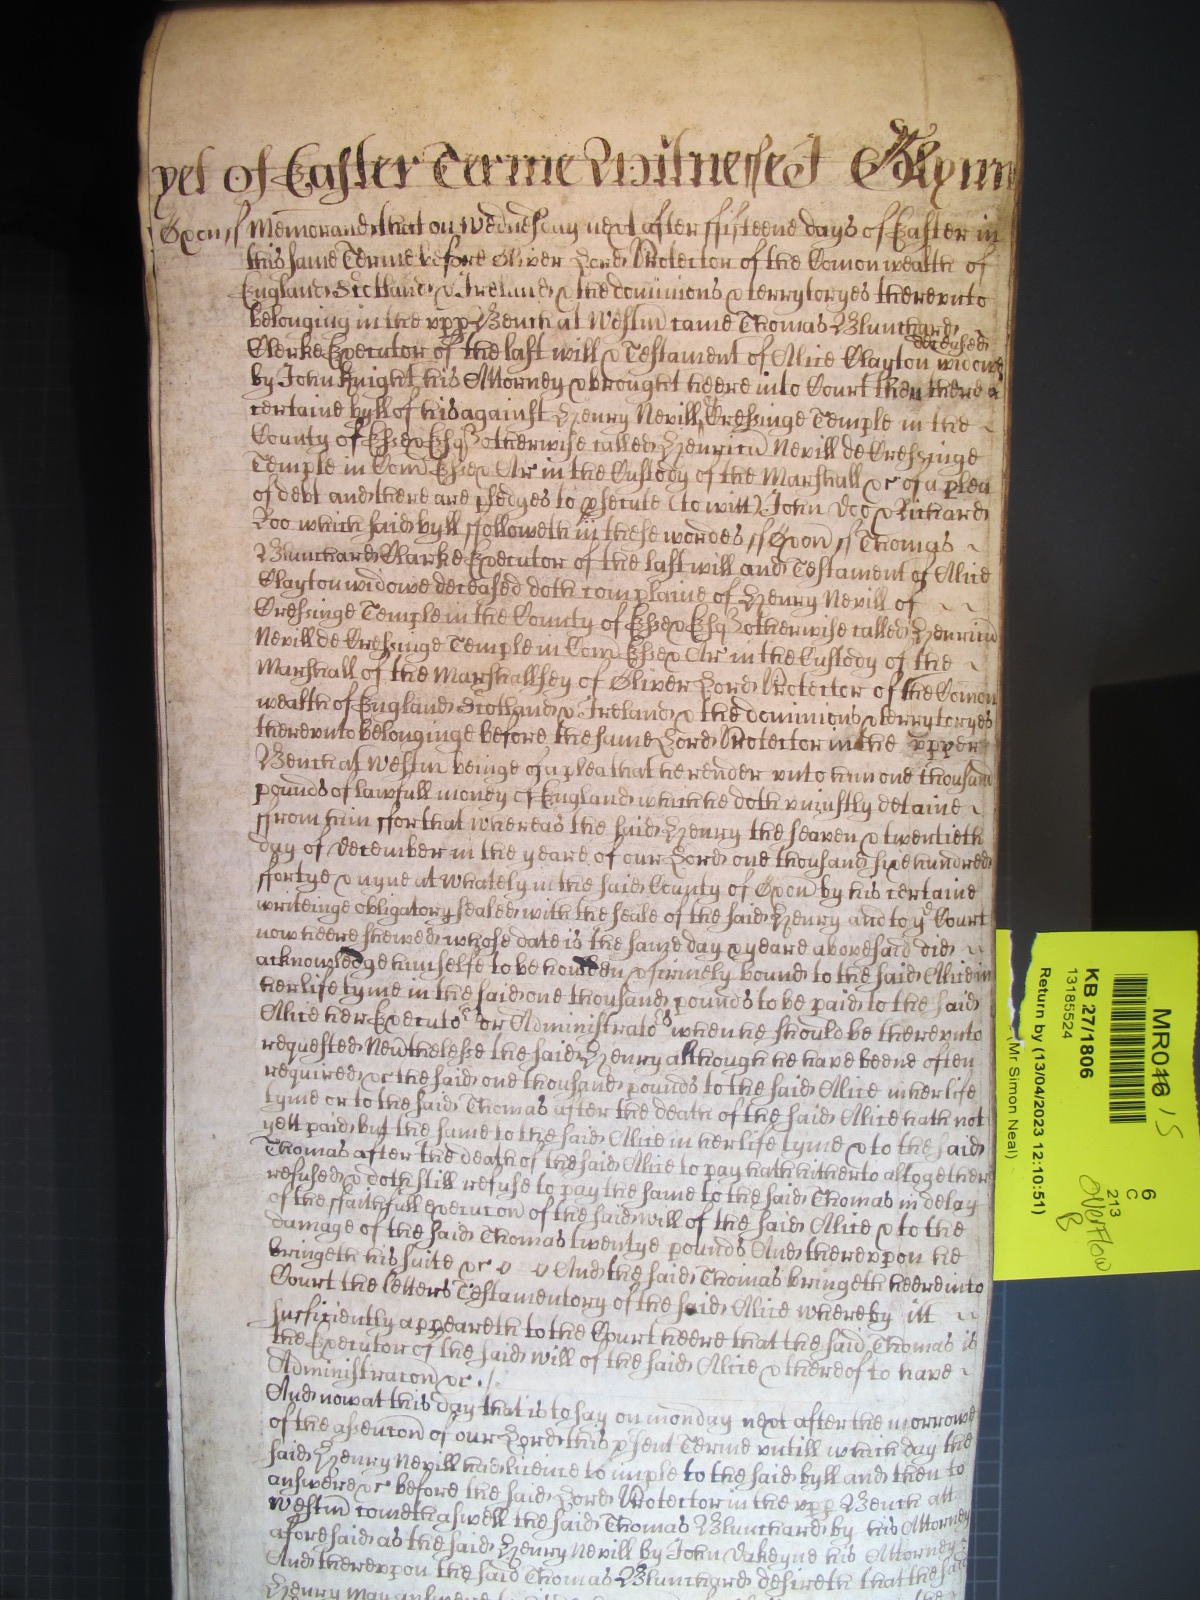 yet of Easter Terme Witnesset Glynn
Oxon ss Memorand that on Wednesday next after ffifteene days of Easter in
this same Terme before Oliver Lord Protector of the Comonwealth of
England Scotland & Ireland & the dominions & terrytoryes therevnto
belonging in the vpp Bench at Westm came Thomas Blanchard
deceased
Clerke Executor of the last will & Testament of Alice Clayton widowe
by John Knight his Attorney & brought heere into Court then there a
certaine byll of his against Henry Nevill of Cressinge Temple in the
County of Essex Esqr otherwise called Henricu Nevill de Cressinge
Temple in Com Essex Ar in the Custody of the Marshall &c of a plea
of debt and there are pledges to psecute (to witt) John Doo & Richard
Roo which said byll ffolloweth in these wordes ss Oxon ss Thomas
Blanchard Clarke Executor of the last will and Testament of Alice
Clayton widowe deceased doth complaine of Henry Nevill of
Cressinge Temple in the County of Essex Esqr otherwise called Henricu
Nevill de Cressinge Temple in Com Essex Ar in the Custody of the
Marshall of the Marshallsey of Oliver Lord Protector of the Comon
wealth of England Scotland & Ireland & the dominions & terrytoryes
therevnto belonginge before the same Lord Protector in the vpper
Bench at Westm beinge of a plea that he render vnto him one thousand
pounds of lawfull money of England which he doth vniustly detaine
ffrom him ffor that whereas the said Henry the seaven & twentieth
day of December in the yeare of our Lord one thousand sixe hundred
ffortye & nyne at Whately in the said County of Oxon by his certaine
writeinge obligatory sealed with the seale of the said Henry and to ye Court
now heere shewed whose date is the same day & yeare abovesaid did
acknowledge himselfe to be houlden & firmely bound to the said Alice in
her life tyme in the said one thousand pounds to be paid to the said
Alice her Executors or Administrators when he should be therevnto
requested Neuthelesse the said Henry although he have beene often
required &c the said one thousand pounds to the said Alice in her life
tyme or to the said Thomas after the death of the said Alice hath not
yett paid but the same to the said Alice in her life tyme & to the said
Thomas after the death of the said Alice to pay hath hitherto altogether
refused & doth still refuse to pay the same to the said Thomas in delay
of the ffaithfull execucon of the said will of the said Alice & to the
damage of the said Thomas twentye pounds And therevpon he
bringeth his suite &c And the said Thomas bringeth heere into
Court the letters Testamentory of the said Alice whereby itt
sufficiently appeareth to the Court heere that the said Thomas is
the Executor of the said will of the said Alice & thereof to have
Administracon &c
And now at this day that is to say on monday next after the morrowe
of the assencon of our Lord this psent Terme vntill which day the
said Henry Nevill had licence to imple to the said byll and then to
answere &c before the said Lord Protector in the vpp Bench att
Westm cometh aswell the said Thomas Blanchard by his Attorney
aforesaid as the said Henry Nevill by John Dakeyne his Attorney
And therevpon the said Thomas Blanchard desireth that the said
Henry may answere to
MR016 15
KB 27/1806
13185524
Return by (13/04/2023 12:10:51)
(Mr Simon Neal)
6
C
213
overflow
B